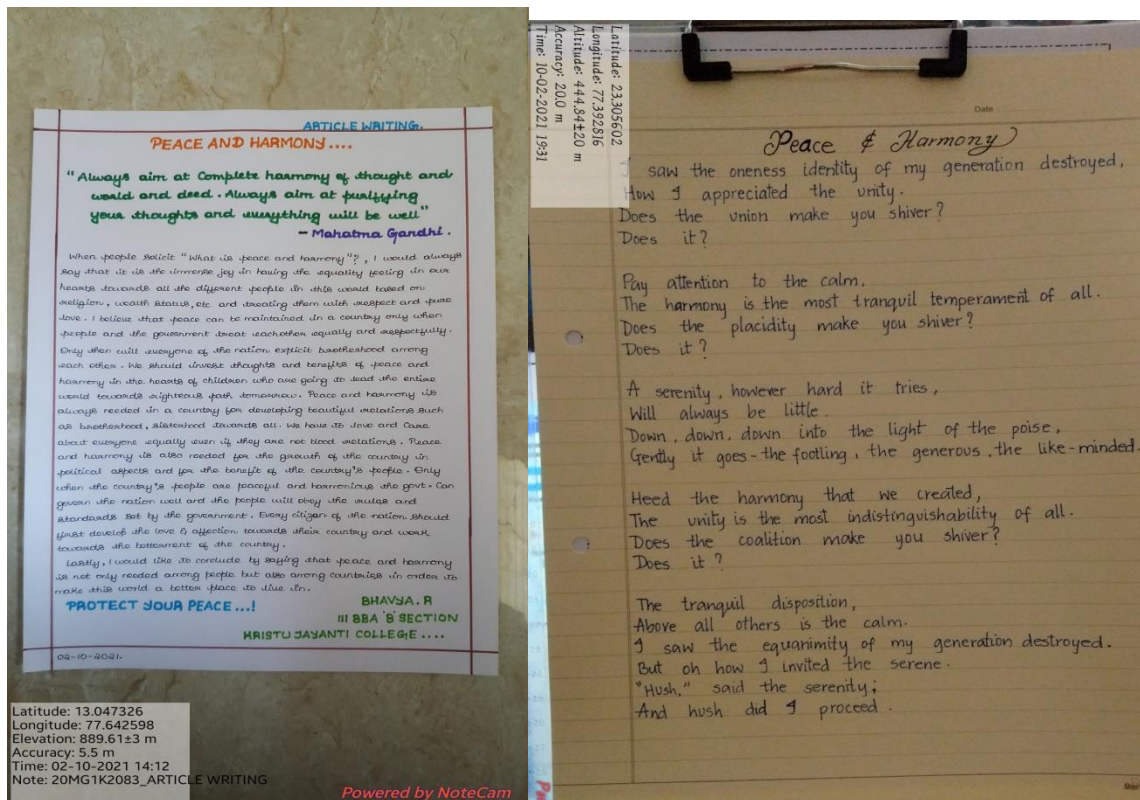 ARTICLE WRITING.
PEACE AND HARMONY....
"Always aim at Complete harmony of thought and
world and deed. Always aim at purifying
your thoughts and everything will be well"
- Mahatma Gandhi.
When people solicit "What is peace and harmony"?, I would always
say that it is the immense joy in having the equality feeling in our
hearts towards all the different people in this world based on
religion, wealth status, etc and treating them with respect and pure
love. I believe that peace can be maintained in a country only when
people and the government treat eachother equally and respectfully.
Only then will everyone of the nation explicit brotherhood among
each other. We should invest thoughts and benefits of peace and
harmony in the hearts of children who are going to lead the entire
world towards righteous path tomorrow. Peace and harmony is
always needed in a country for developing beautiful relations such
as brotherhood, sisterhood towards all. We have to love and care
about everyone equally even if they are not blood relations. Peace
and harmony is also needed for the growth of the country in
political aspects and for the benefit of the country's people. Only
when the country's people are peaceful and harmonious the govt. Can
govern the nation well and the people will obey the rules and
standards set by the government. Every citizen of the nation should
first develop the love & affection towards their country and work
towards the betterment of the country.
Lastly, I would like to conclude by saying that peace and harmony
is not only needed among people but also among countries in order to
make this world a better place to live in.
PROTECT YOUR PEACE...!
BHAVYA. R
III BBA 'B' SECTION
KRISTU JAYANTI COLLEGE....
02-10-2021.
Latitude: 13.047326
Longitude: 77.642598
Elevation: 889.61±3 m
Accuracy: 5.5 m
Time: 02-10-2021 14:12
Note: 20MG1K2083_ARTICLE WRITING
Powered by NoteCam
Latitude: 23.305602
Longitude: 77.392816
Altitude: 444.84±20 m
Accuracy: 20.0 m
Time: 10-02-2021 19:31
Date
Peace & Harmony
I saw the oneness identity of my generation destroyed,
How I appreciated the unity.
Does the union make you shiver?
Does it?
Pay attention to the calm,
The harmony is the most tranquil temperament of all.
Does the placidity make you shiver?
Does it?
A serenity, however hard it tries,
Will always be little.
Down, down, down into the light of the poise,
Gently it goes - the footling, the generous, the like-minded.
Heed the harmony that we created,
The unity is the most indistinguishability of all.
Does the coalition make you shiver?
Does it?
The tranquil disposition,
Above all others is the calm.
I saw the equanimity of my generation destroyed.
But oh how I invited the serene.
"Hush," said the serenity;
And hush did I proceed.